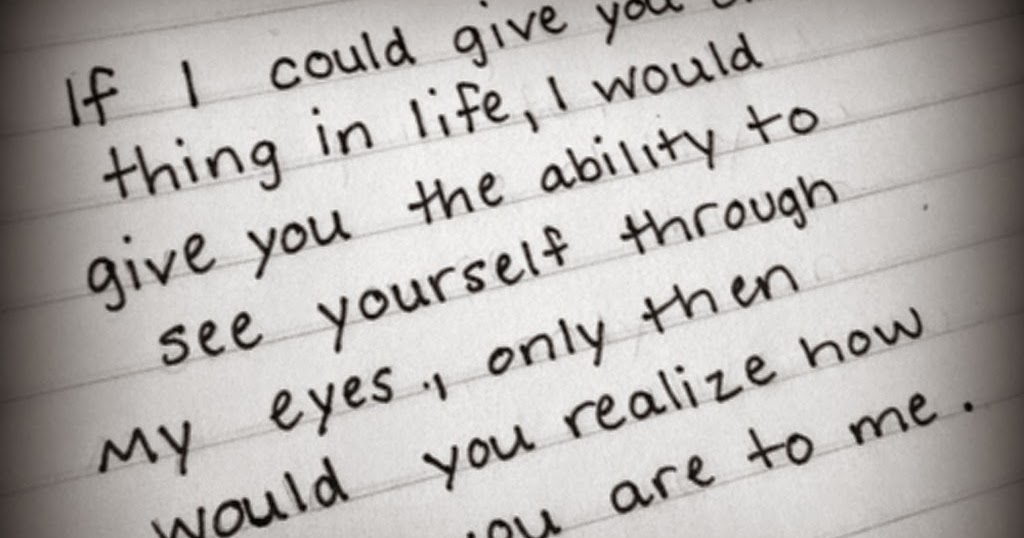 If I could give you
thing in life, I would
give you the ability to
see yourself through
my eyes., only then
would you realize how
you are to me.